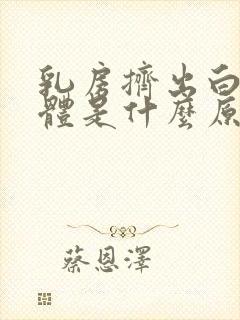 乳房擠出白
體是什麼原
蔡恩澤